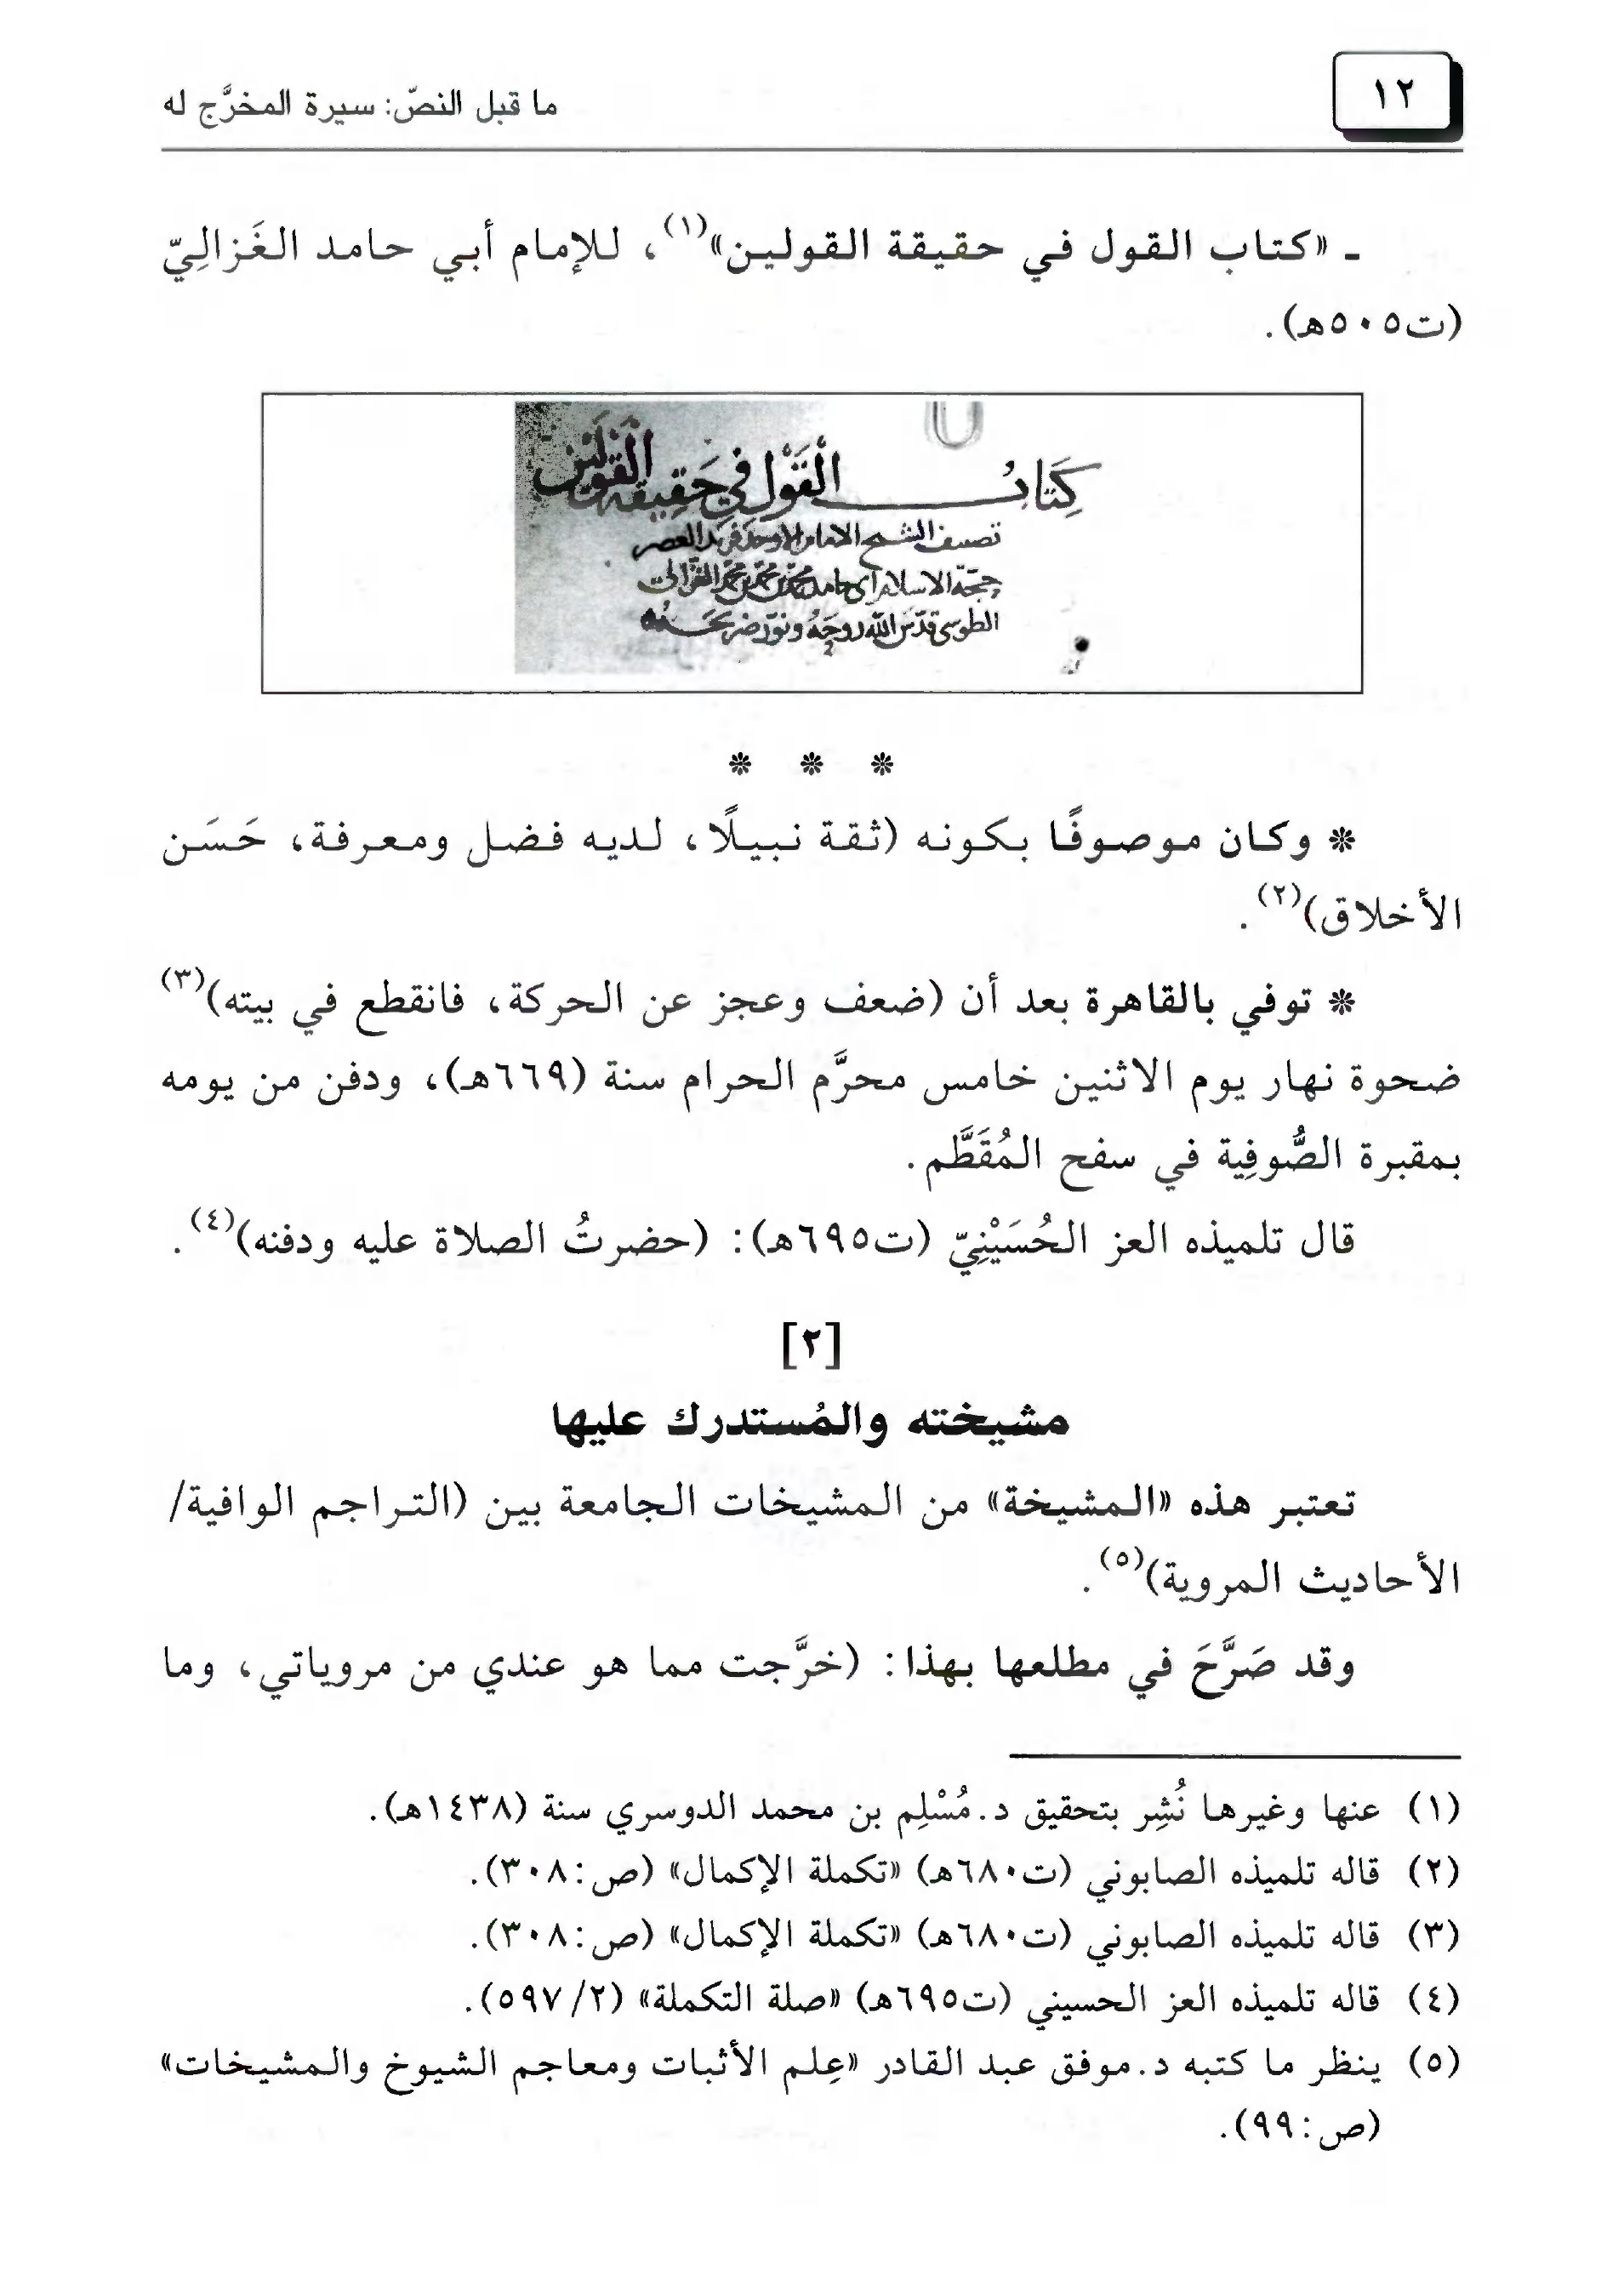 ١٢
ما قبل النصّ: سيرة المخرَّج له
ـ «كتاب القول في حقيقة القولين»(١)، للإمام أبي حامد الغَزالِيّ
(ت٥٠٥هـ).
كِتَابُ القَوْل فِي حَقِيقة القَوْلَيْن
تصنيف الشيخ الامام الاوحد فريد العصر
حجّة الاسلام ابى حامد محمّد بن محمّد بن محمّد الغزّالى
الطوسى قدّس الله روحَهُ ونوّر ضريحَهُ
* * *
* وكان موصوفًا بكونه (ثقة نبيلًا، لديه فضل ومعرفة، حَسَن
الأخلاق)(٢).
* توفي بالقاهرة بعد أن (ضعف وعجز عن الحركة، فانقطع في بيته)(٣)
ضحوة نهار يوم الاثنين خامس محرَّم الحرام سنة (٦٦٩هـ)، ودفن من يومه
بمقبرة الصُّوفِية في سفح المُقَطَّم.
قال تلميذه العز الحُسَيْنِيّ (ت٦٩٥هـ): (حضرتُ الصلاة عليه ودفنه)(٤).
[٢]
مشيخته والمُستدرك عليها
تعتبر هذه «المشيخة» من المشيخات الجامعة بين (التراجم الوافية/
الأحاديث المروية)(٥).
وقد صَرَّحَ في مطلعها بهذا: (خرَّجت مما هو عندي من مروياتي، وما
(١) عنها وغيرها نُشِر بتحقيق د.مُسْلِم بن محمد الدوسري سنة (١٤٣٨هـ).
(٢) قاله تلميذه الصابوني (ت٦٨٠هـ) «تكملة الإكمال» (ص:٣٠٨).
(٣) قاله تلميذه الصابوني (ت٦٨٠هـ) «تكملة الإكمال» (ص:٣٠٨).
(٤) قاله تلميذه العز الحسيني (ت٦٩٥هـ) «صلة التكملة» (٢/ ٥٩٧).
(٥) ينظر ما كتبه د.موفق عبد القادر «عِلم الأثبات ومعاجم الشيوخ والمشيخات»
(ص:٩٩).